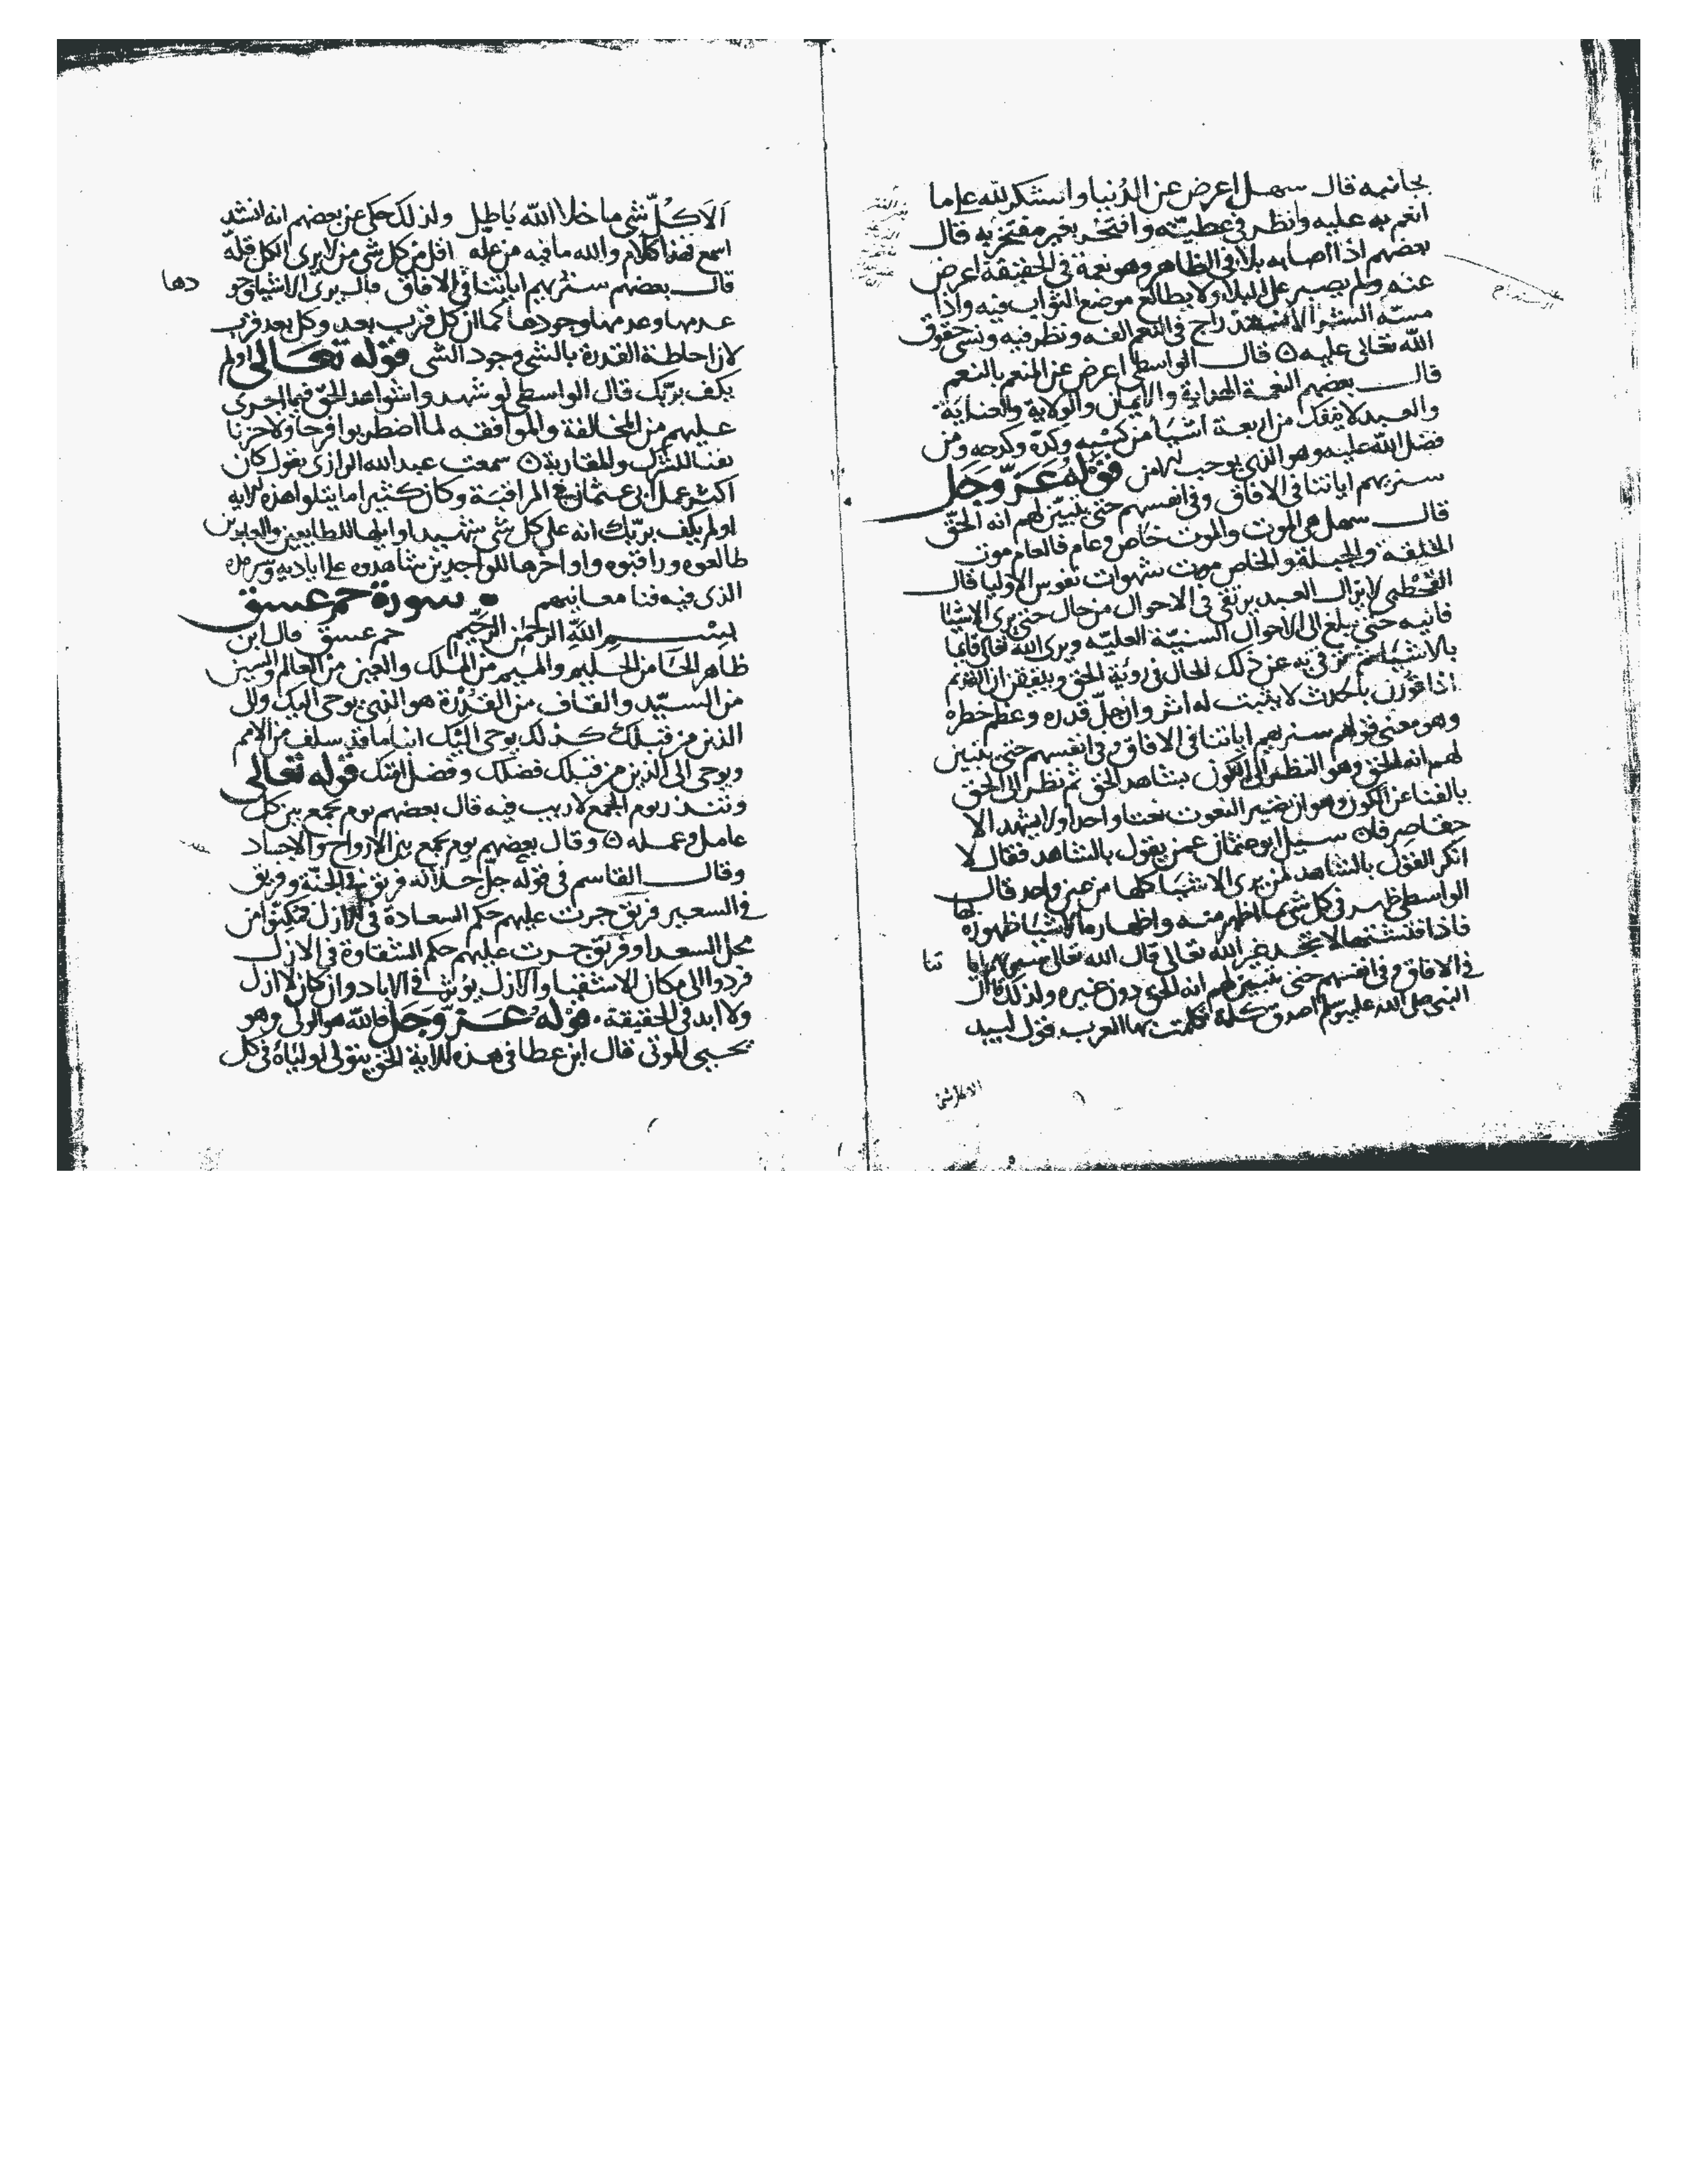 بجانبه قال سهل اعرض عن الدنيا واشكر لله على ما
انعم به عليه وانظر في عطيته وافتخر بغير مفتخر به قال
بعضهم اذا اصابه بلا في الظاهر وهو نعمة في الحقيقة اعرض
عنه ولم يصبر على البلا ولا يطالع موضع الثواب فيه واذا
مسّه الشر الاستدراج في النعم الفه ونظر فيه ونسي حقوق
الله تعالى عليه ۞ قال الواسطي اعرض عن المنعم بالنعم
قال بعضهم النعمة الهداية والايمان والولاية والعناية
والعبد لا ينفك من اربعة اشيا من كسبه وكدّه وكدحه ومن
فضل الله عليه وهو الذي يوجب قوله عزّ وجل
سنريهم اياتنا في الافاق وفي انفسهم حتى يتبيّن لهم انه الحقّ
قال سهل هي الموت والموت خاص وعام فالعام موت
الخلقة والجبلة والخاص موت شهوات نفوس الاوليا قال
القحطبي لا يزال العبد يرتقي في الاحوال من حال حتى يرى الاشيا
فانيه حتى يبلغ الى الاحوال السنيّة العليّه ويرى الله تعالى قايما
بالاشيا ثم عن ذلك الحال في رؤية الحق ويتيقن ان القديم
اذا قورن بالحدث لا يثبت له اثر وان جلّ قدره وعظم خطره
وهو معنى قولهم سنريهم اياتنا في الافاق وفي انفسهم حتى يتبين
لهم انه الحق وهو النظر الى الكون بشاهد الحق ثم نظر الى الحق
بالفنا عن الكون وهو ان تصير النعوت نعتا واحدا ولا يشهد الا
سيل ابو عثمان عمن يقول بالشاهد فقال لا
انكر القول بالشاهد لمن يرى الاشيا كلها من عين واحد قال
الواسطي ظهر في كل شي بما اظهر منه واظهاره الاشيا ظهوره بها
فاذا فتشتها لا تجد غير الله تعالى قال الله تعالى سنريهم ايا تنا
في الافاق وفي انفسهم حتى يتبين لهم انه الحق دون غيره ولذلك قال
النبي صلى الله عليه وسلم اصدق كلمة تكلمت بها العرب قول لبيد
الا كل شي
الَا كلّ شي ما خلا الله باطل ولذلك حكي عن بعضهم انه انشد
اسمع هذا كلام والله ما فيه من عله اقل من كل شي من لا يرى الكل قله
قال بعضهم سنريهم اياتنا في الافاق قال يرى الاشيا وجو دها
عدمها وعدمها وجودها كما ان كل قرب بعد وكل بعد قرب
لان احاطة القدرة بالشي وجود الشي قوله تعالى اولم
يكف بربّك قال الواسطي لو شهدوا شواهد الحق فيما اجرى
عليهم من المخالفة والموافقه لما اضطربوا فرحا ولا حزنا
والمقاربة ۞ سمعت عبد الله الرازي يقول كان
اكثر عمل ابي عثمان المراقبة وكان كثيرا ما يتلوا هذه الاية
اولم يكف بربّك انه على كل شي شهيد اوايلها للطايعين والعابدين
طالعوه وراقبوه واواخرها للواجدين شاهدوه على اياديه
الذي فيه فنا معانيهم ۞ سورة حم عسق
بسم الله الرحمن الرحيم حم عسق قال ابن
طاهر الحا من الحليم والميم من الملك والعين من العالم والسين
من السيّد والقاف من القدرة هو الذي يوحي اليك والى
الذين من قبلك كذلك يوحي اليك انبا ما قد سلف من الامم
ويوحي الى الذين من قبلك فضلك وفضل امتك قوله تعالى
وتنذر يوم الجمع لا ريب فيه قال بعضهم يوم يجمع بين كل
عامل وعمله ۞ وقال بعضهم يوم يجمع بين الارواح والاجساد
وقال القاسم في قوله جل جلاله فريق في الجنّة وفريق
في السعير فريق جرت عليهم حكم السعادة في الازل فتمكنوا من
محل السعدا وفريق جرت عليهم حكم الشقاوة في الازل
فردوا الى مكان الاشقيا والازل يؤثر في الاباد وان كان لا ازل
ولا ابد في الحقيقة قوله عزّ وجلّ فالله هو الولي وهو
يحيي الموتى قال ابن عطا في هذه الاية الحق يتولى اولياه في كل